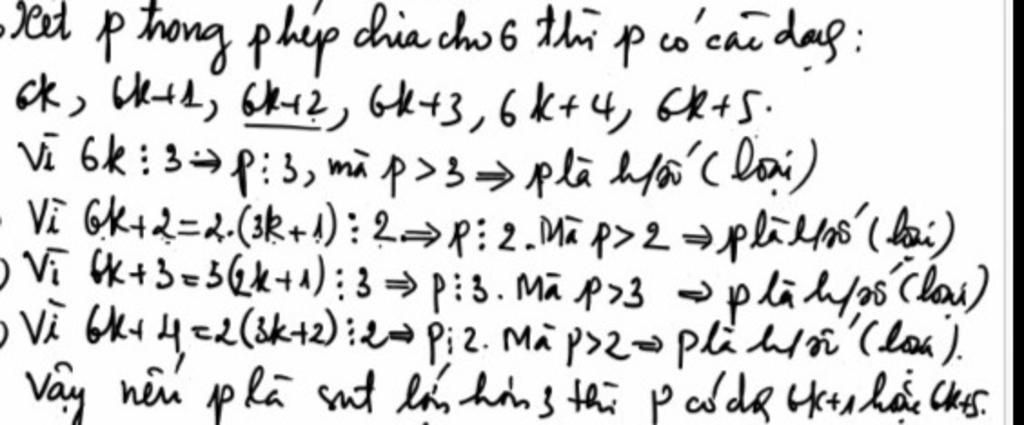 Xét p trong phép chia cho 6 thì p có các dạng:
6k, 6k+1, 6k+2, 6k+3, 6k+4, 6k+5.
Vì 6k ⋮ 3 ⇒ p ⋮ 3, mà p > 3 ⇒ p là h/số (loại)
Vì 6k+2=2.(3k+1) ⋮ 2 ⇒ p ⋮ 2. Mà p > 2 ⇒ p là h/số (loại)
Vì 6k+3=3(2k+1) ⋮ 3 ⇒ p ⋮ 3. Mà p>3 ⇒ p là h/số (loại)
Vì 6k+4=2(3k+2) ⋮ 2 ⇒ p ⋮ 2. Mà p>2 ⇒ p là h/số (loại).
Vậy nếu p là snt lớn hơn 3 thì p có dg 6k+1 hoặc 6k+5.